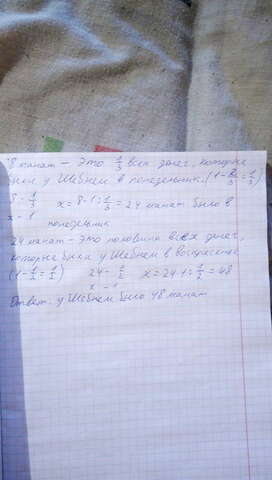 8 манат - это 1/3 всех денег, которые
были у Шебнем в понедельник. (1-2/3=1/3)
8 - 1/3
x - 1
x = 8·1:1/3 = 24 манат было в
понедельник
24 манат - это половина всех денег,
которые были у Шебнем в воскресенье
(1-1/2=1/2) 24 - 1/2 x = 24·1:1/2 = 48
x - 1
Ответ: у Шебнем было 48 манат